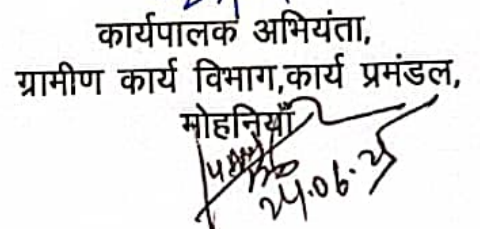 कार्यपालक अभियंता,
ग्रामीण कार्य विभाग,कार्य प्रमंडल,
मोहनियाँ
24.06.25